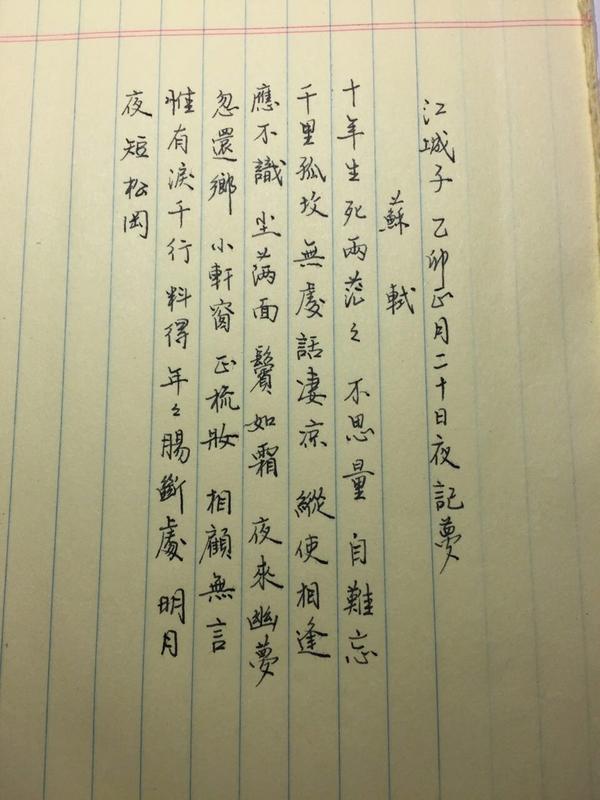 江城子 乙卯正月二十日夜記夢
蘇軾
十年生死兩茫々 不思量 自難忘
千里孤坟 無處話凄凉 縱使相逢
應不識 尘满面 鬢如霜 夜來幽夢
忽還鄉 小軒窗 正梳妝 相顧無言
惟有淚千行 料得年々腸斷處 明月
夜 短松岡